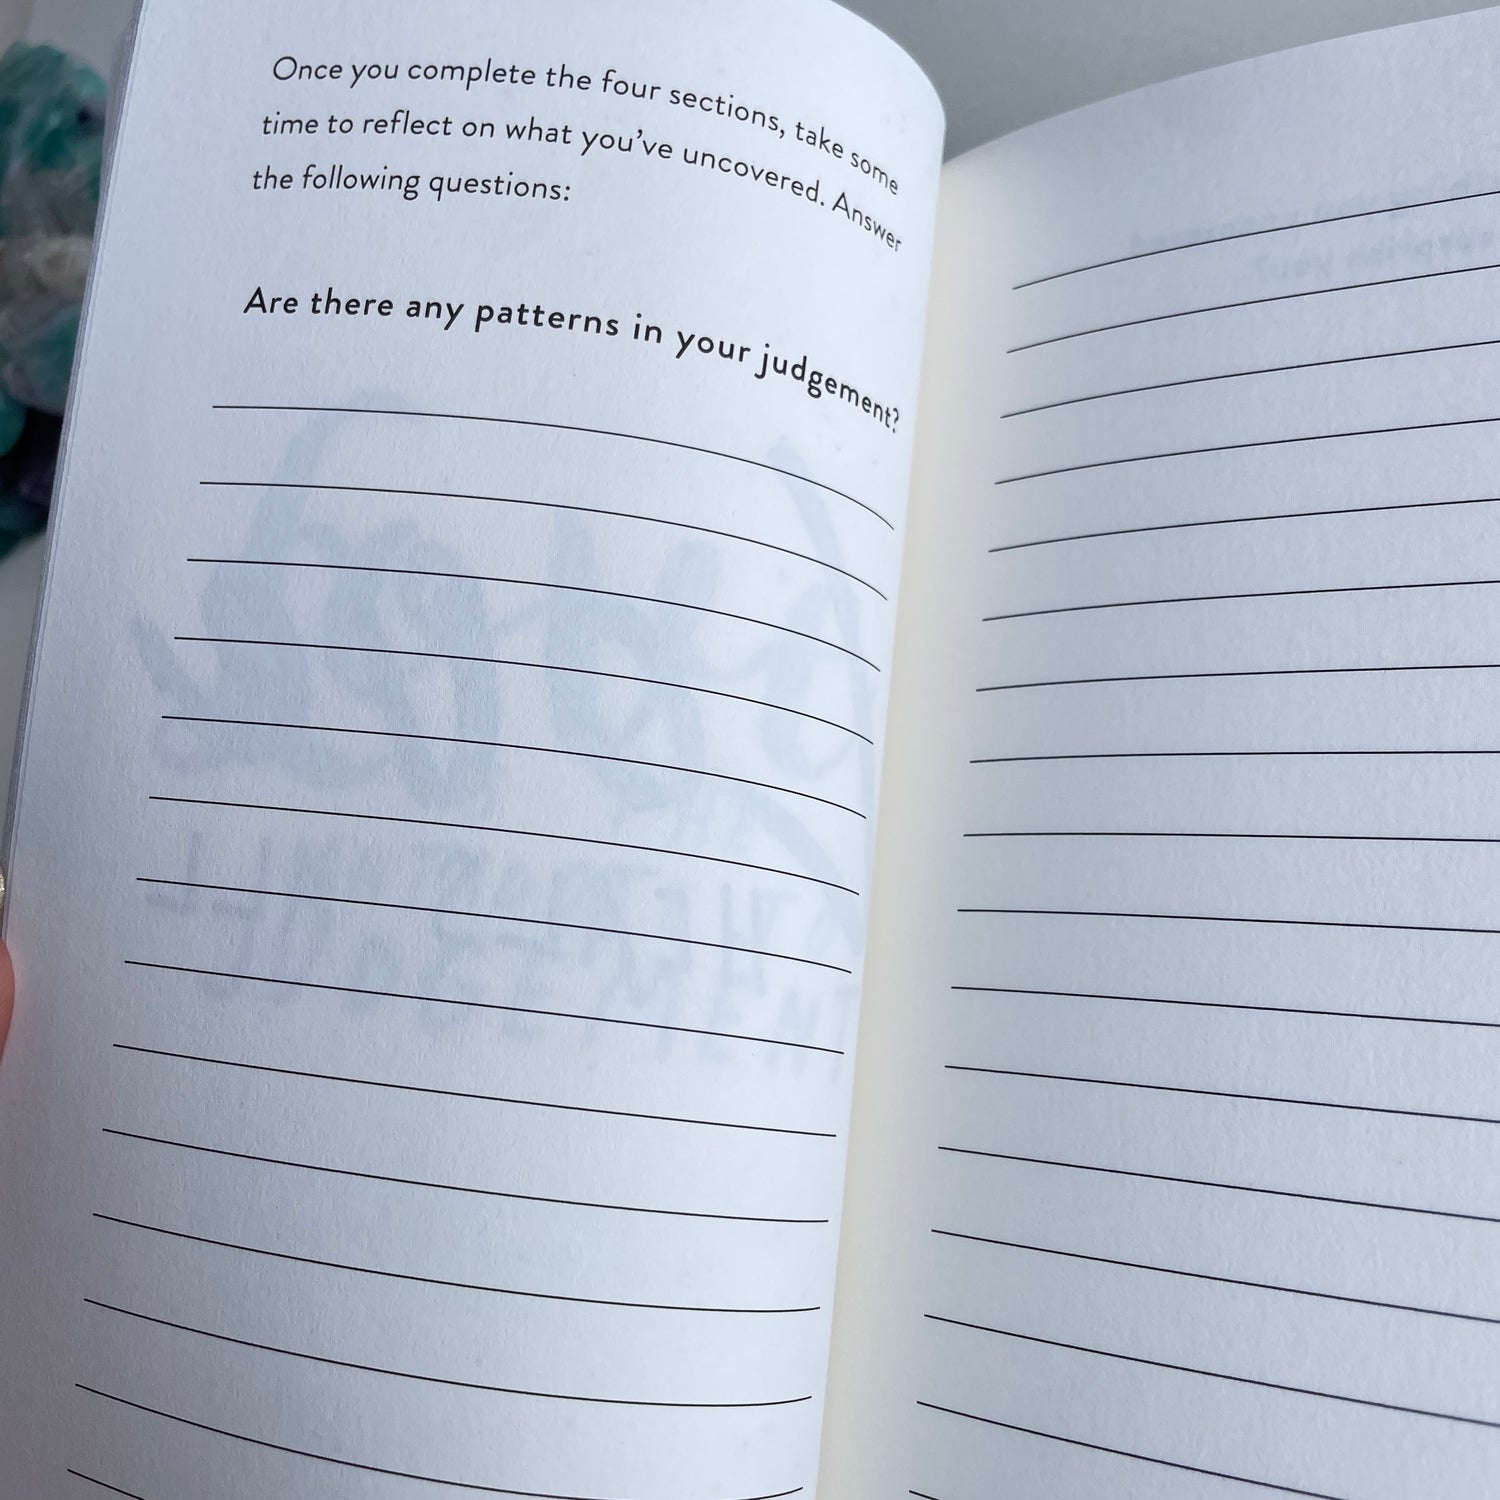 Once you complete the four sections, take some
time to reflect on what you've uncovered. Answer
the following questions:
Are there any patterns in your judgement?